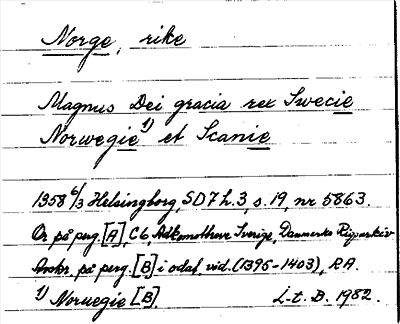 Norge, rike
Magnus Dei gracia rex Swecie
Norwegie 1) et Scanie
1358 6/3 Helsingborg, SD 7 h. 3, s. 19, nr 5863.
Or. på perg. [A], C6, Danmarks Rigsarkiv
Avskr. på perg. [B] i odat. vid. (1396-1403), RA.
1) Noruegie [B]. L-t. D. 1982.